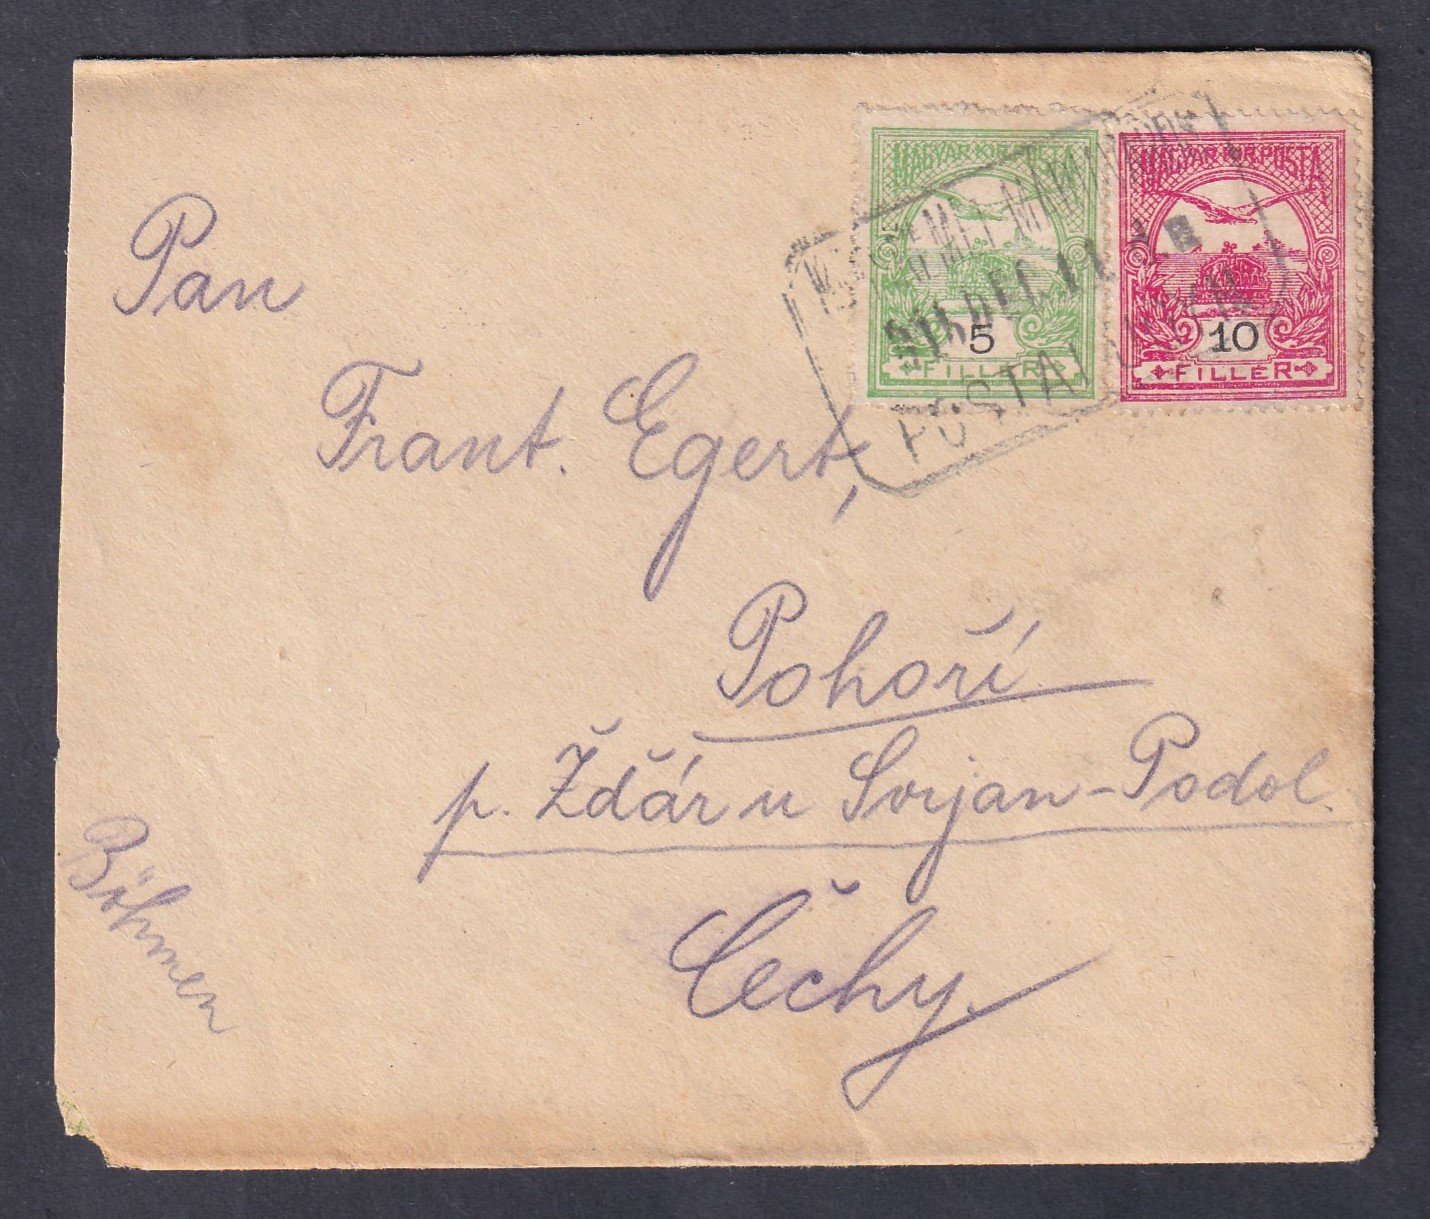 MAGYAR KIR. POSTA
5
FILLER
MAGYAR KIR. POSTA
10
FILLÉR
916 DEC.
POSTAI
Pan
Frant. Egert,
Pohoří
p. Ždár u Svojan-Podol.
Čechy.
Böhmen